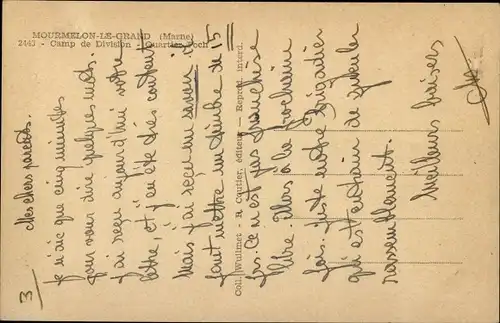 MOURMELON-LE-GRAND (Marne)
2442 - Camp de Division - Quartier Foch
Coll. Wuilmet - R. Coutier, éditeur — Reprod. interd.
3
Mes chers parents.
Je n'ai que cinq minutes
pour vous dire quelques mots.
J'ai reçu aujourd'hui votre
lettre, et j'en été très content
Mais j'ai reçu un savon : il
faut mettre un timbre de 15
frs. Ce n'est pas franchise
libre. Alors à la prochaine
fois. Juste notre brigadier
qui est en train de gueuler
rassemblement.
Meilleurs baisers